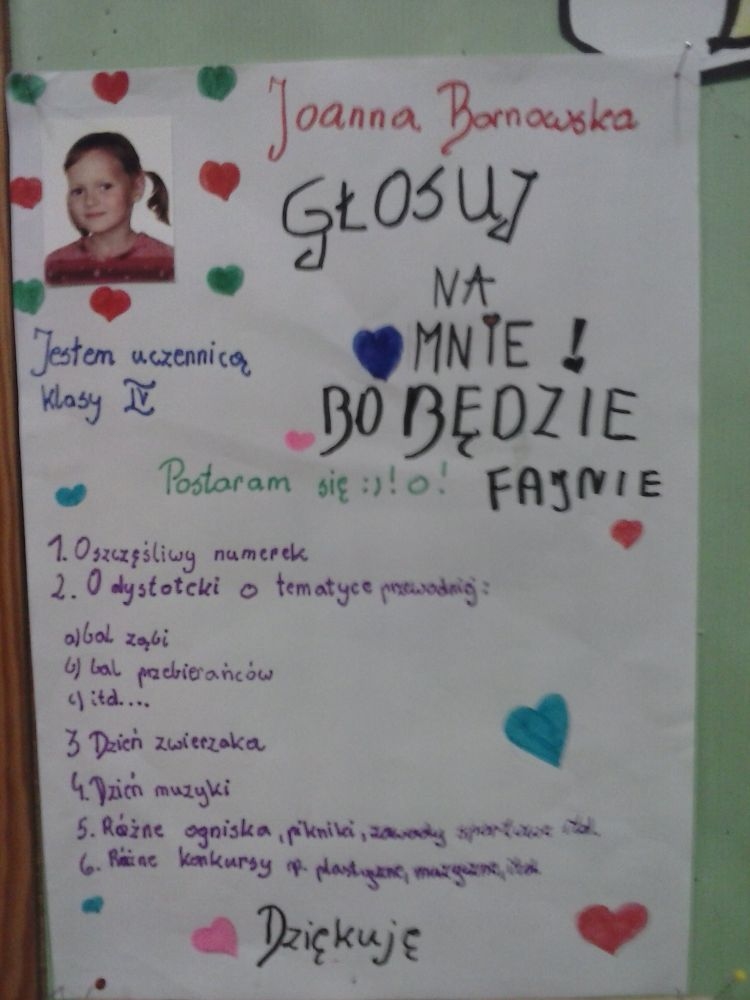 Joanna Bornowska
GŁOSUJ
NA
MNIE!
BO BĘDZIE
FAJNIE
Jestem uczennicą
klasy IV
Postaram się :)! o!
1. O szczęśliwy numerek
2. O dystotcki o tematyce przewodniej:
a) bal ząbi
b) bal przebierańców
c) itd....
3 Dzień zwierzaka
4. Dzień muzyki
5. Różne ogniska, pikniki, zawody sportowe itd.
6. Różne konkursy np. plastyczne, muzyczne, itd.
Dziękuję